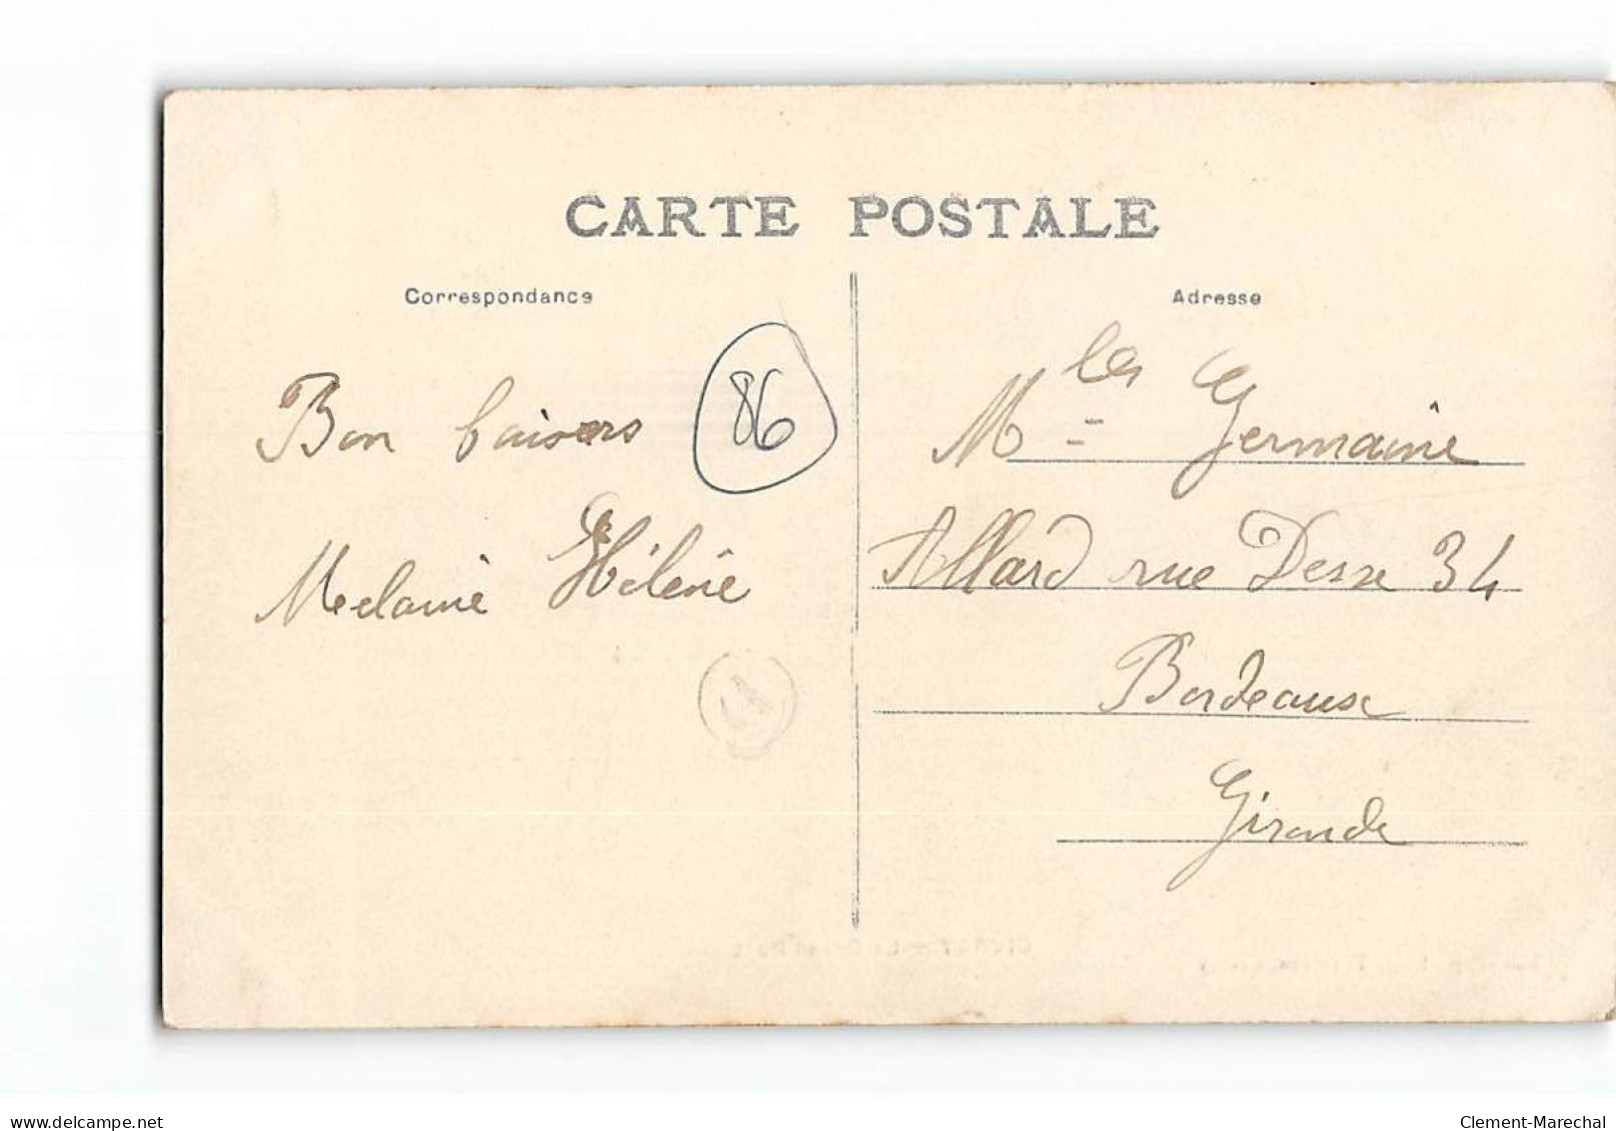 CARTE POSTALE
Correspondance
Adresse
Bon baisers
86
Melanie Hélène
Mles Germaine
Allard rue Desse 34
Bordeaux
Gironde
delcampe.net
Clement-Marechal